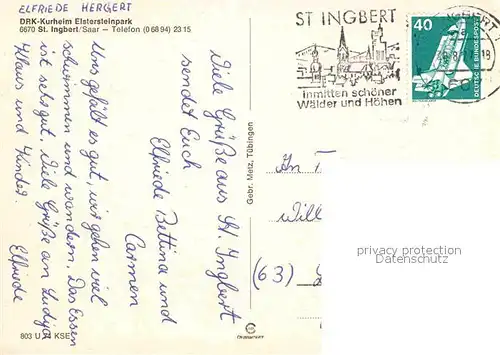 ELFRIEDE HERGERT
DRK-Kurheim Elstersteinpark
6670 St. Ingbert/Saar — Telefon (0 68 94) 23 15
Uns gefält es gut, wir gehen viel
schwimmen und wandern. Das Essen
ist sehr gut. Viele Grüße an Ludiga
Klaus und Kinder.
Elfriede
803 U 74 KSE
Viele Grüße aus St. Ingbert
sendet Euch
Elfriede Bettina und
Carmen
Gebr. Metz, Tübingen
ST INGBERT
Inmitten schöner
Wälder und Höhen
40
DEUTSCHE BUNDESPOST
INGBERT
An
Will
(63)
privacy protection